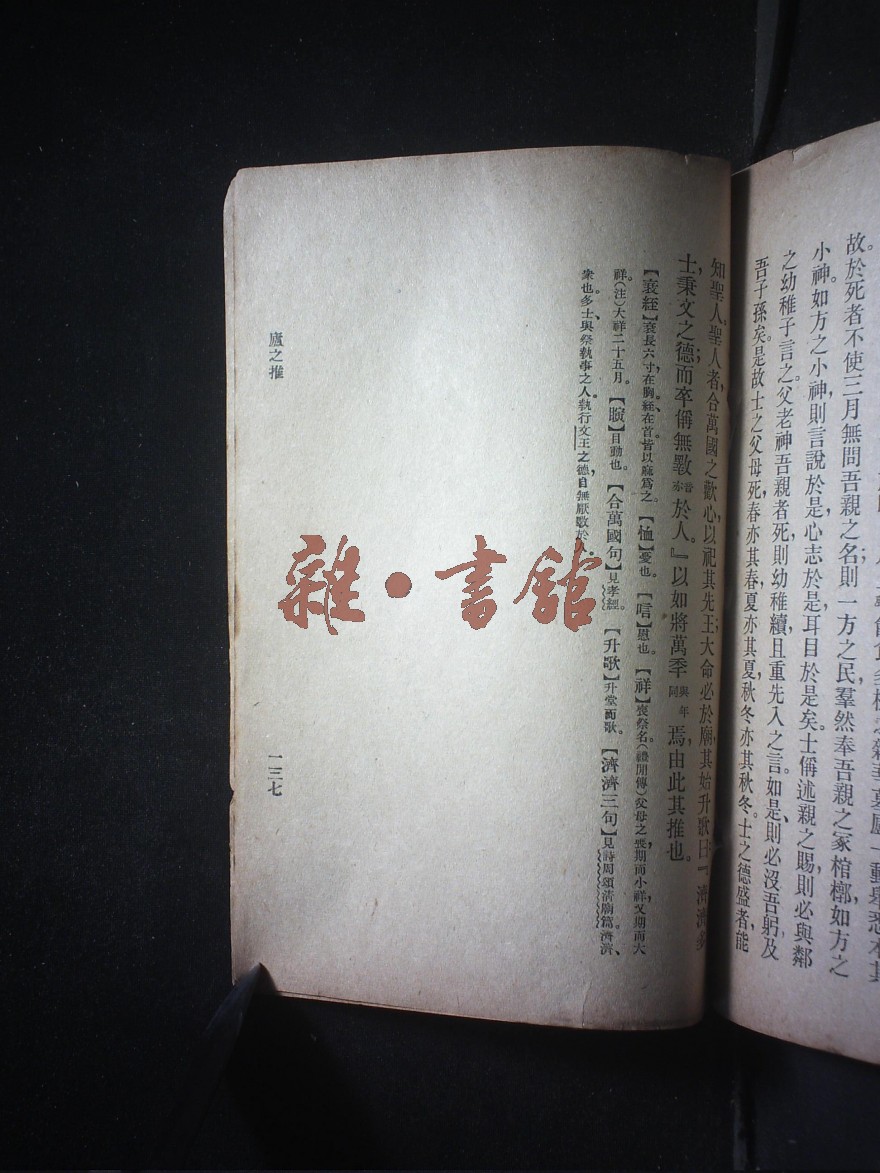 故於死者不使三月無問吾親之名則一方之民羣然奉吾親之冢棺槨如方之
小神。如方之小神則言說於是心志於是耳目於是矣。士偁述親之賜則必與鄰
之幼稚子言之父老神吾親者死則幼稚續且重先入之言。如是則必沒吾躬及
吾子孫矣。是故士之父母死春亦其春夏亦其夏秋冬亦其秋冬。士之德盛者能
知聖人聖人者合萬國之歡心以祀其先王大命必於廟其始升歌曰『濟濟多
士秉文之德而卒偁無斁音亦於人。』以如將萬秊與年同焉由此其推也。
【衰絰】衰長六寸在胸。絰在首皆以麻爲之。【恤】憂也。【唁】恩也。【祥】喪祭名(禮閒傳)父母之喪期而小祥又期而大
祥。(注)大祥二十五月。【瞚】目動也。【合萬國句】見孝經。【升歌】升堂而歌。【濟濟三句】見詩周頌清廟篇濟濟、
衆也。多士與祭執事之人。執行文王之德自無厭斁於
廬之推
一三七
雜·書館